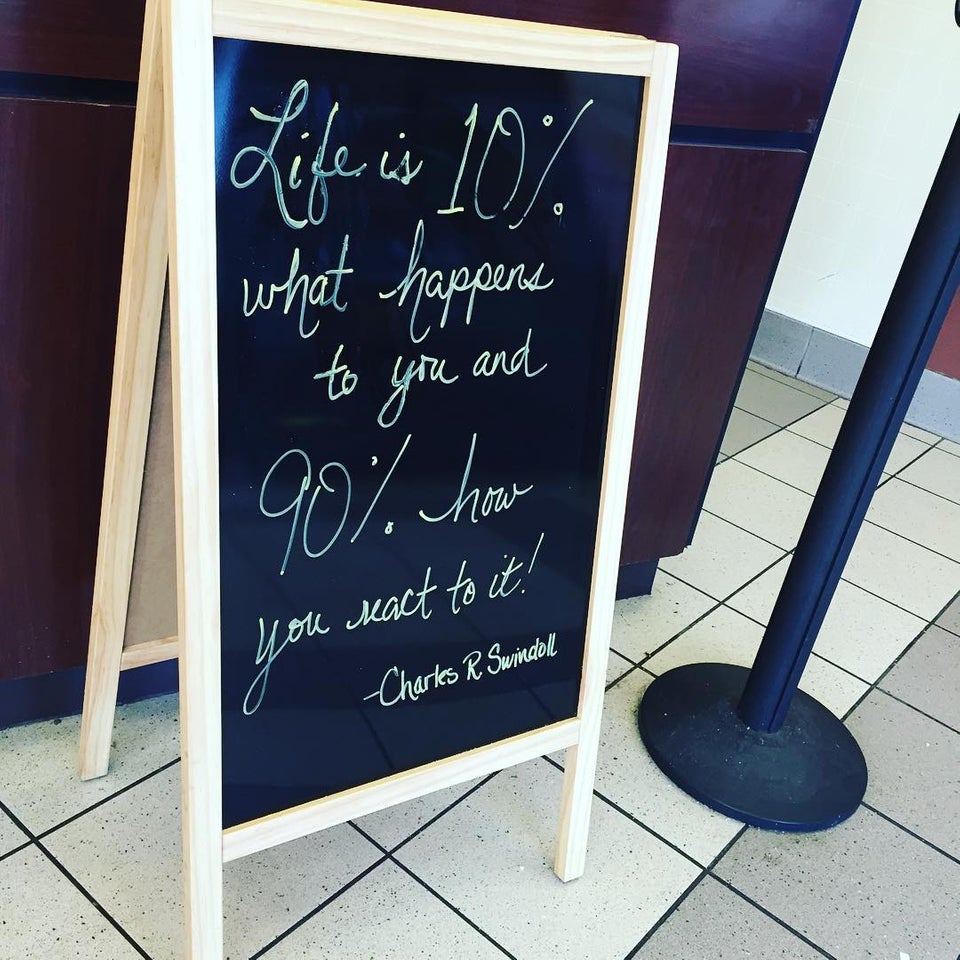 Life is 10%
what happens
to you and
90% how
you react to it!
-Charles R. Swindoll